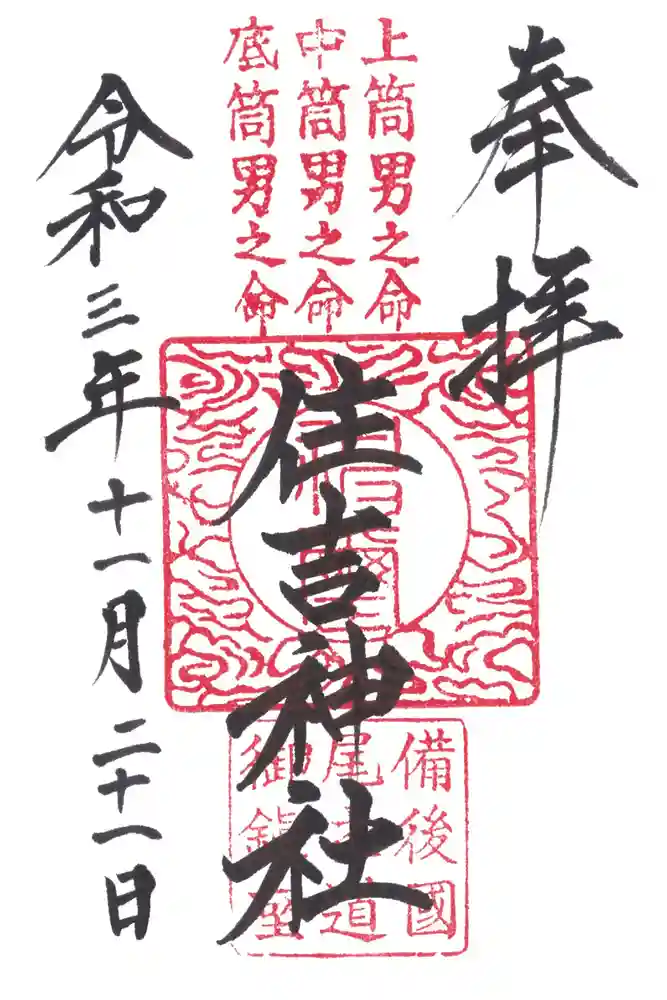 奉拝
上筒男之命
中筒男之命
底筒男之命
住吉神社
備後國
尾 道
御鎮座
令和三年十一月二十一日